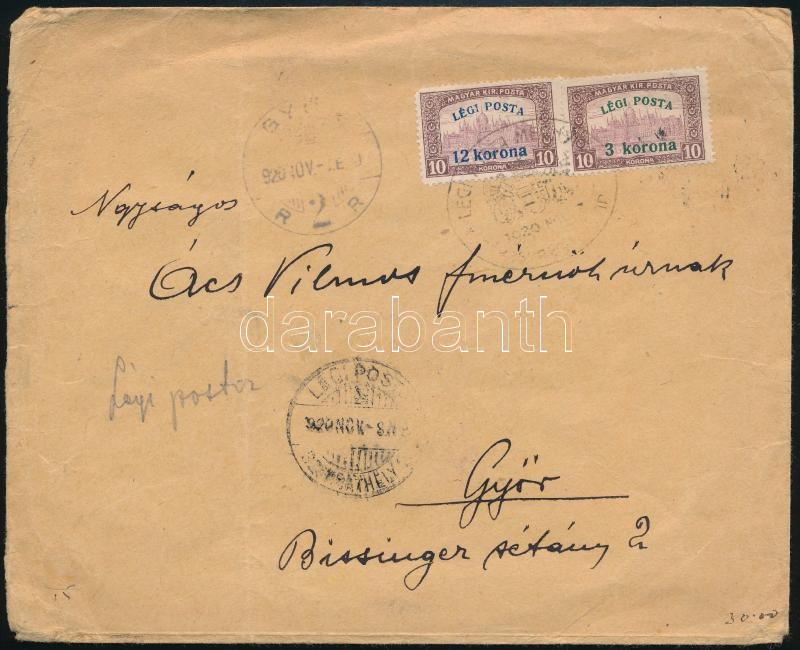 MAGYAR KIR. POSTA MAGYAR KIR. POSTA
LÉGI POSTA LÉGI POSTA
12 korona 3 korona
10 KORONA 10 10 KORONA 10
GY
920 NOV
R R
LÉGI
1920
Nagyságos
Ács Vilmos főmérnök úrnak
darabanth
Légi posta
LÉGI POS
920 NOV - 8
Győr
Bissinger sétány 2
30.00